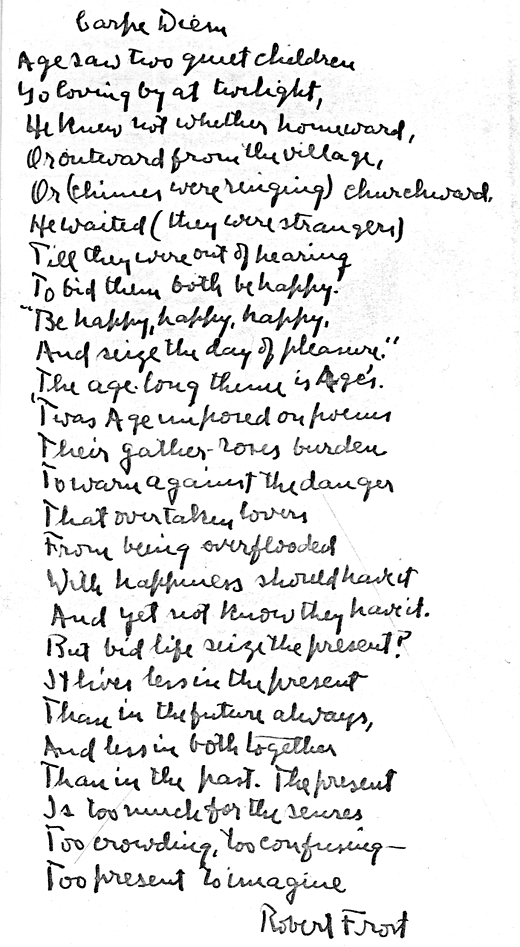 Carpe Diem
Age saw two quiet children
Go loving by at twilight,
He knew not whether homeward,
Or outward from the village,
Or (chimes were ringing) churchward.
He waited (they were strangers)
Till they were out of hearing
To bid them both be happy.
"Be happy, happy, happy,
And seize the day of pleasure."
The age-long theme is Age's.
'Twas Age imposed on poems
Their gather-roses burden
To warn against the danger
That overtaken lovers
From being overflooded
With happiness should have it
And yet not know they have it.
But bid life seize the present?
It lives less in the present
Than in the future always,
And less in both together
Than in the past. The present
Is too much for the senses
Too crowding, too confusing—
Too present to imagine
Robert Frost